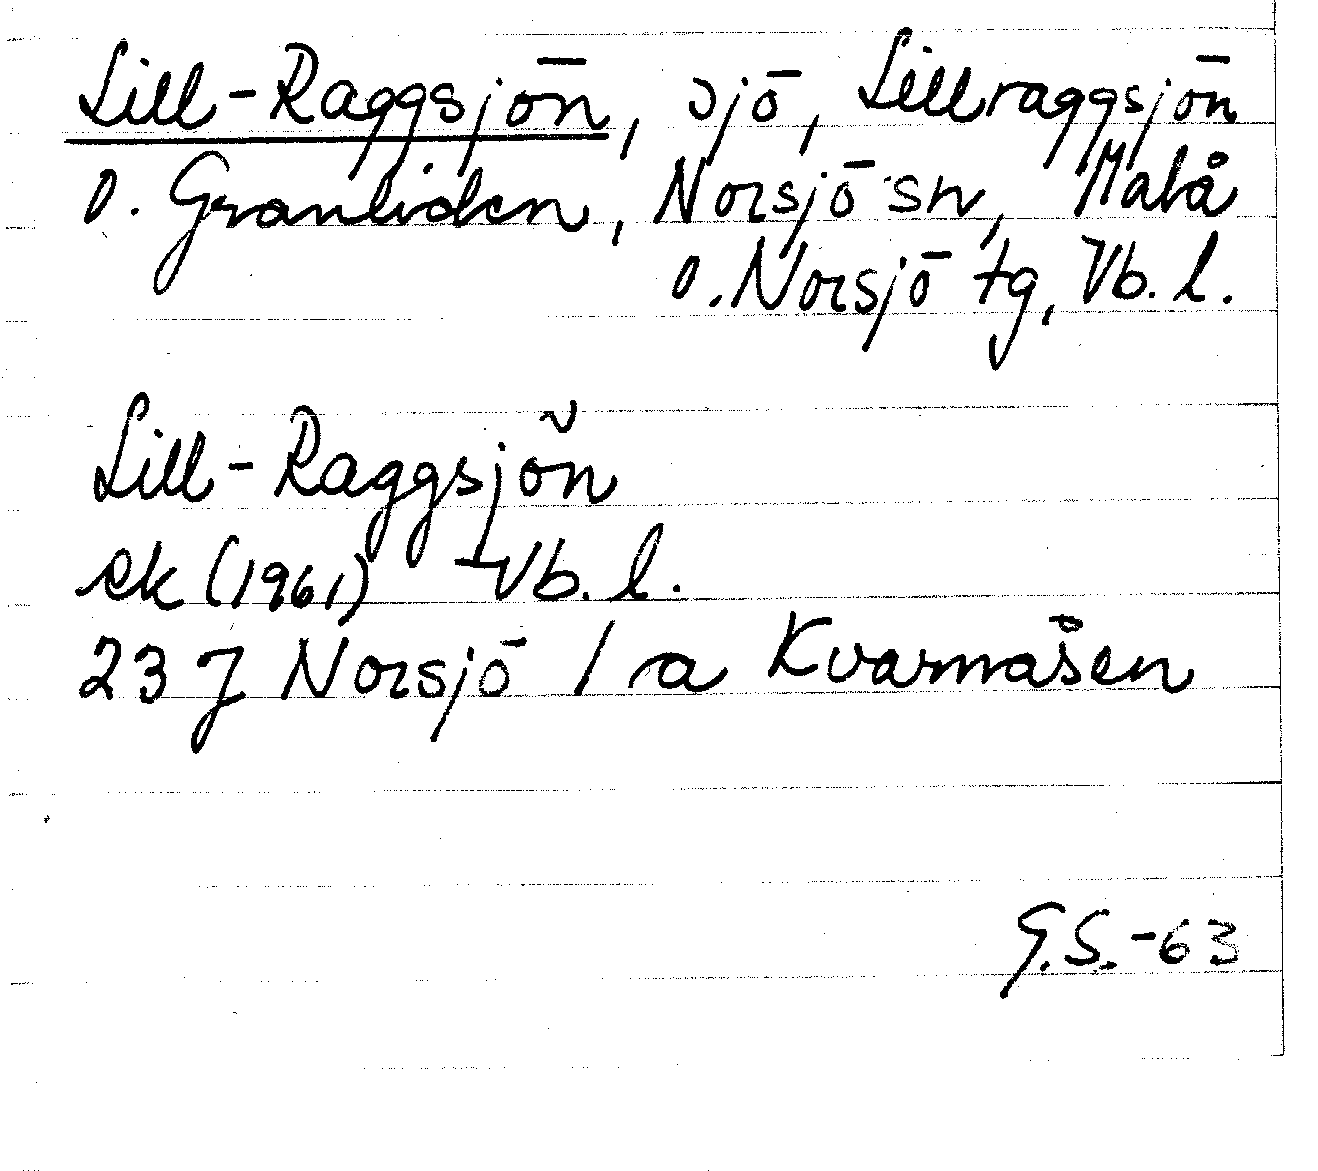 Lill-Raggsjön, sjö, Lillraggsjön
o. Granliden, Norsjö sn, Malå
o. Norsjö tg, Vb. l.
Lill-Raggsjön
ek (1961) Vb. l.
23 J Norsjö / a Kvarnåsen
G.S.-63